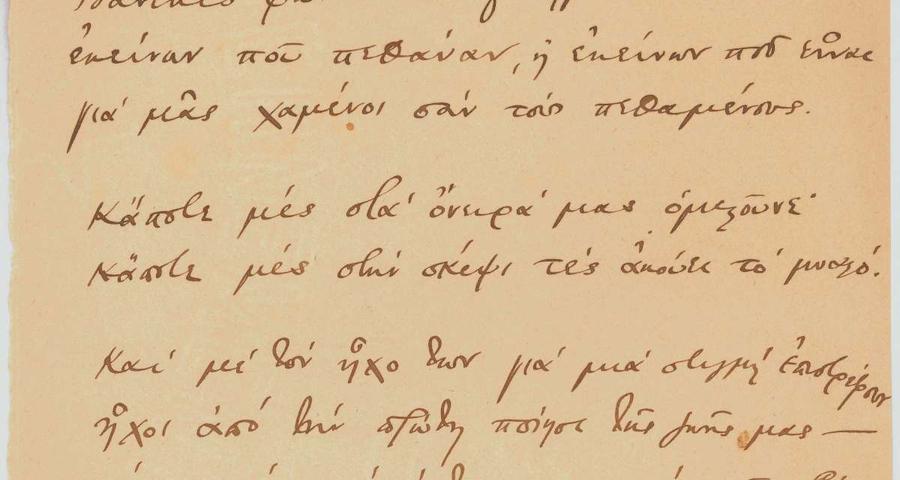 ἐκείνων ποῦ πεθάναν, ἤ ἐκείνων ποῦ εἶναι
γιά μᾶς χαμένοι σάν τούς πεθαμένους.
Κάποτε μές στά ὄνειρά μας ὁμιλοῦνε·
κάποτε μές στήν σκέψι τές ἀκούει τό μυαλό.
Καί μέ τόν ἦχο των γιά μιά στιγμή ἐπιστρέφουν
ἦχοι ἀπό τήν πρώτη ποίησι τῆς ζωῆς μας —